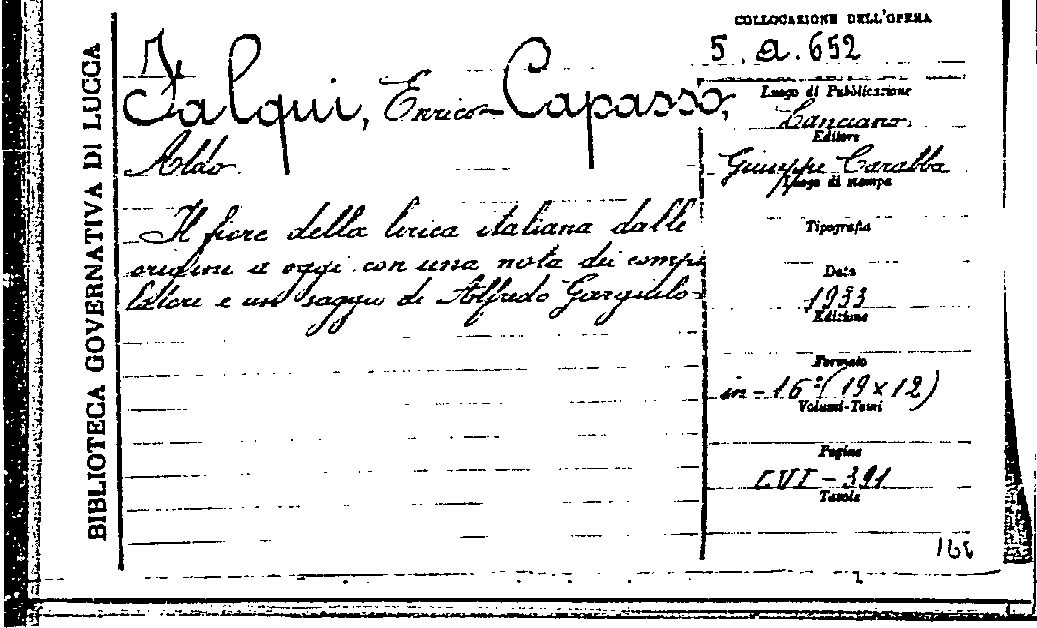 BIBLIOTECA GOVERNATIVA DI LUCCA
Falqui, Enrico - Capasso,
Aldo.
Il fiore della lirica italiana dalle
origini a oggi con una nota dei compi
latori e un saggio di Alfredo Gargiulo -
COLLOCAZIONE DELL'OPERA
5. a. 652
Luogo di Pubblicazione
Lanciano.
Editore
Giuseppe Carabba
Luogo di stampa
Tipografia
Data
1933
Edizione
Formato
in - 16° (19 x 12)
Volumi-Tomi
Pagine
LVI - 391
Tavole